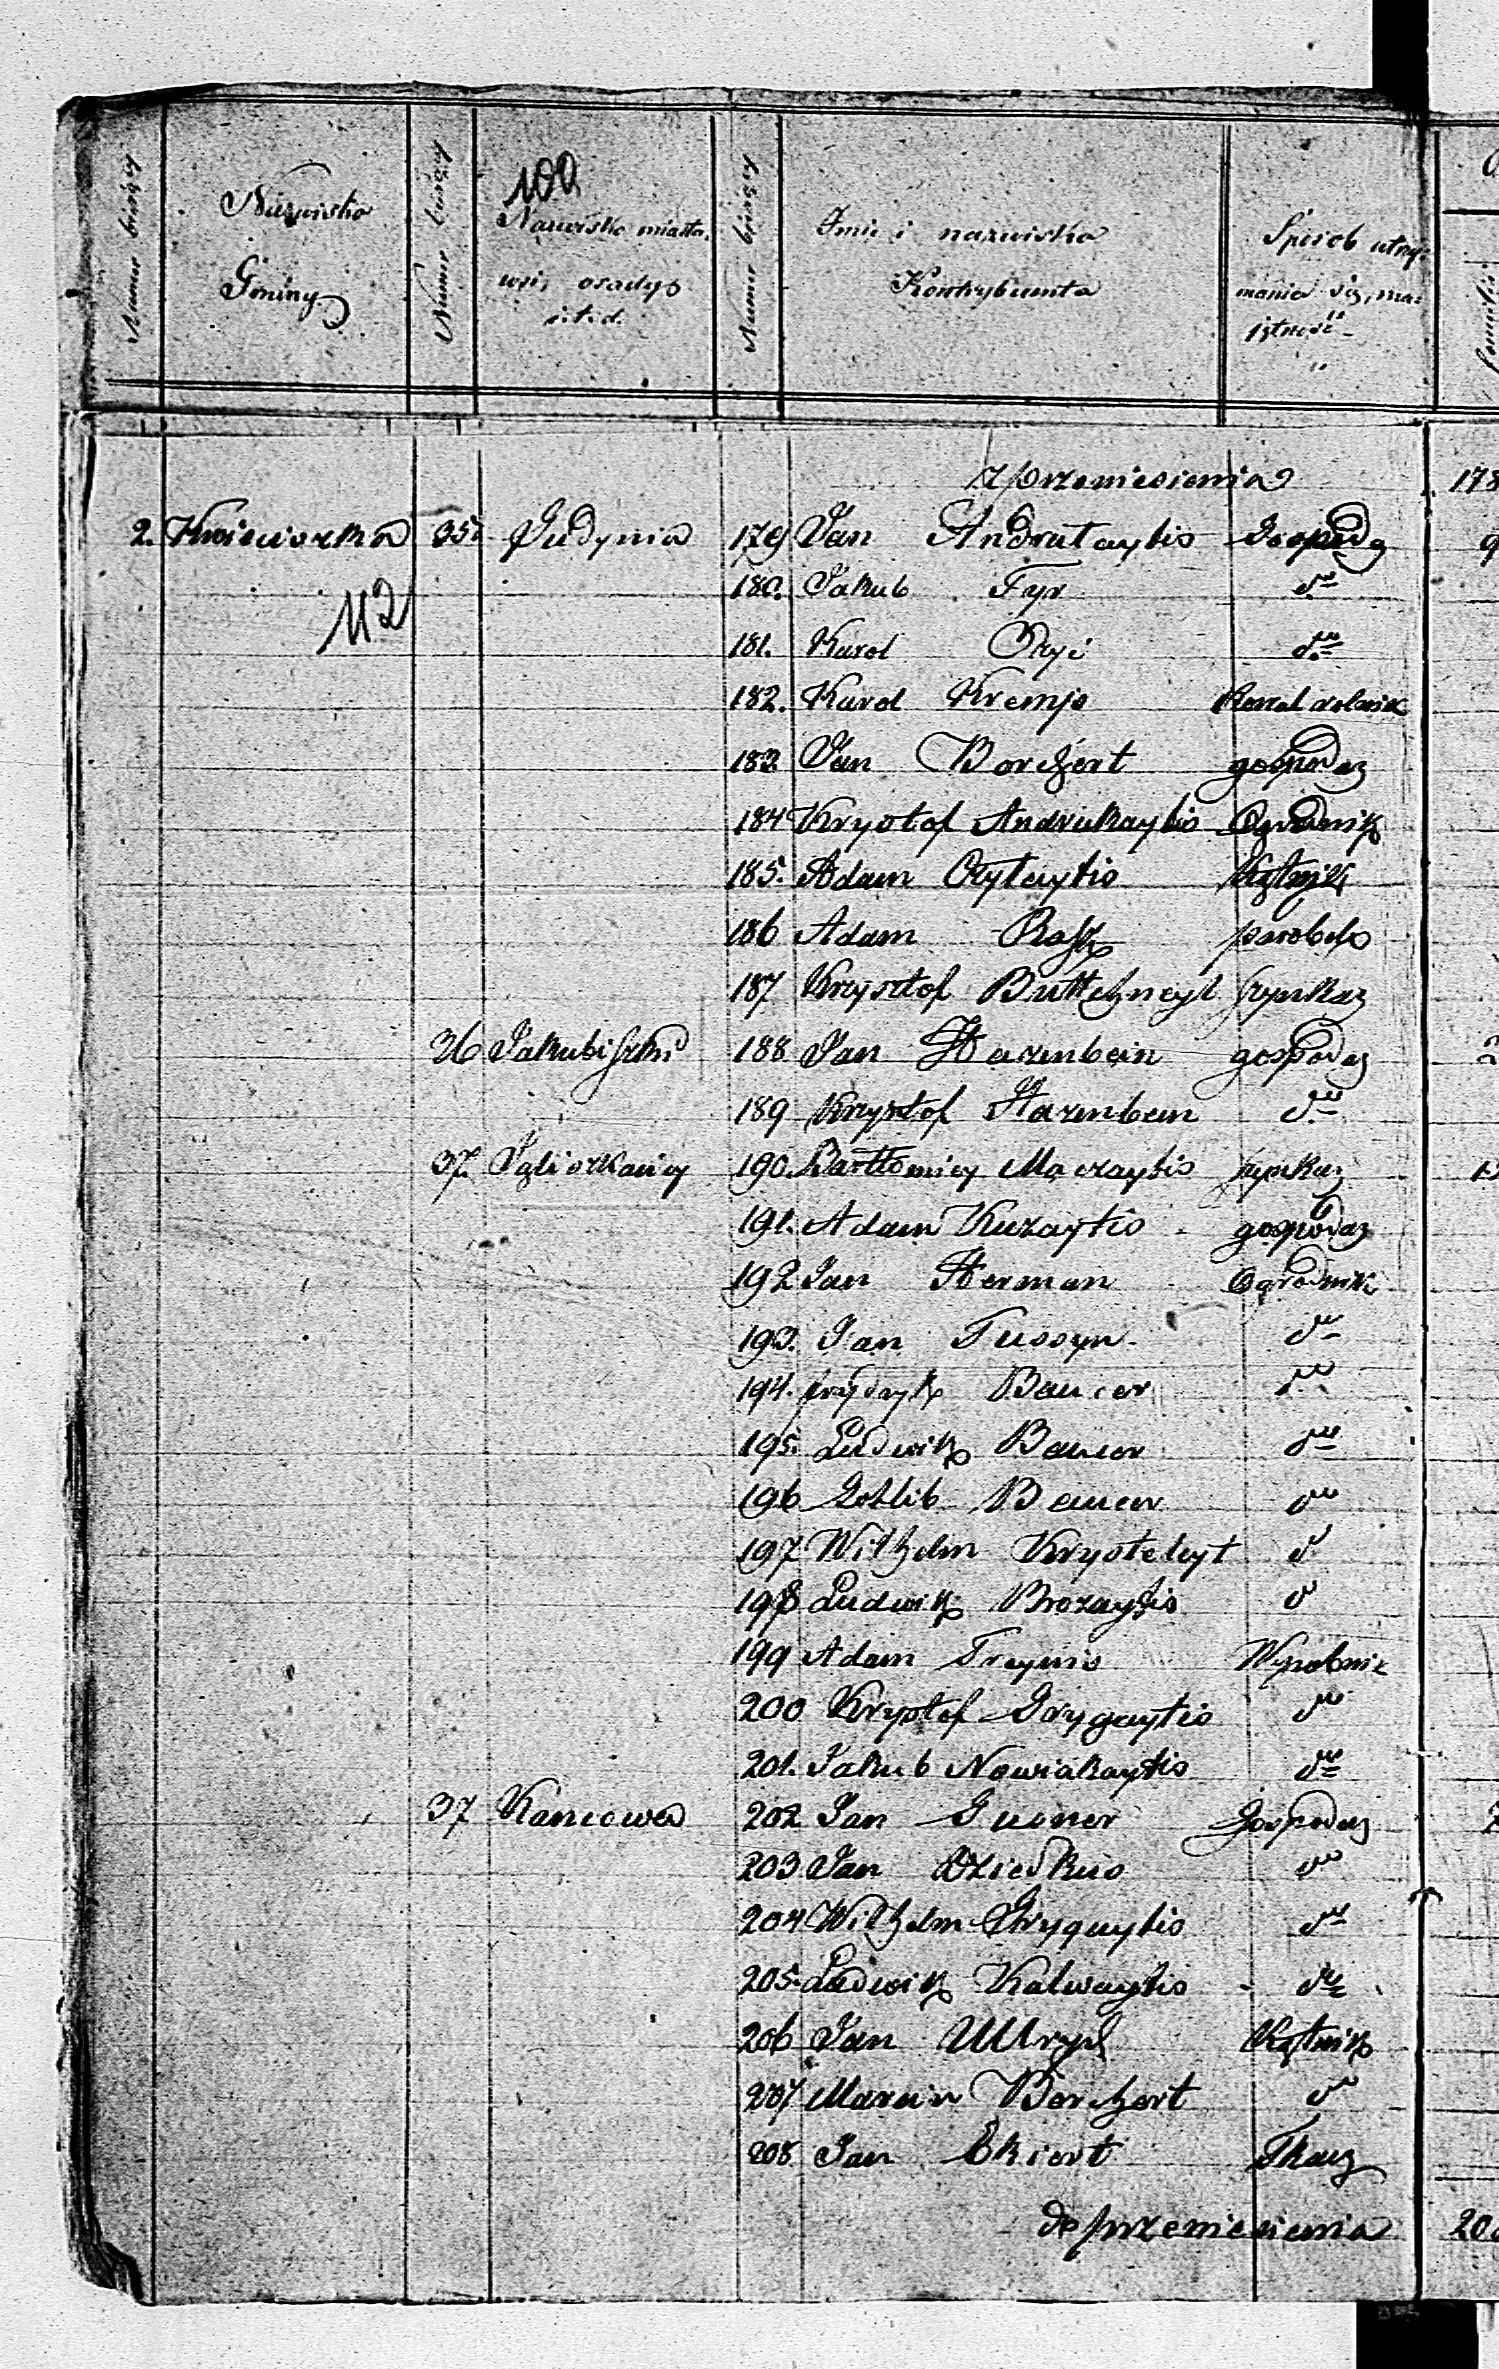 100
Numer bieżący Nazwisko Gminy Numer bieżący Nazwisko miasta, wsi, osady i.t.d. Numer bieżący Imie i nazwisko Kontrybuenta Sposób utrzymania się, majętność
z przeniesienia 178
2. Kwieciszka 35. Judynia 179 Jan Andrutaytis Gospoda 9
180. Jakub Tyr dto
112
181. Karol dto
182. Karol Krempo Kowal rolnik
183 Jan Borchert gospodaz
184 Krystof Andrukaytis Ogrodnik
185. Adam Kątnik
186 Adam parobek
187 Krzysztof szynkaz
36 Jakubiszki 188 Jan Hazenbein gospodaz 2
189 Krzysztof Hazenbein dto
37. 190. Bartłomiey Maczaytis szynkaz
191. Adam Kuzaytis gospodaz
192 Jan Herman Ogrodnik
193. Jan Tussyn dto
194. Frydryk Baucer dto
195. Ludwik Baucer dto
196 Gotlib Baucer dto
197 Wilhelm Krysteleyt d
198 Ludwik Brozaytis d
199 Adam Treynis Wyrobnik
200 Krysztof Grygaytis dto
201. Jakub Nowiakaytis dto
37 Kancowa 202 Jan Gusner Gospodaz 2
203 Jan Dziedkus dto
204 Wilhelm Grygaytis dto
205. Ludwik Kalwaytis dto
206 Jan Ullrych Kątnik
207 Marcin Borchert dto
208 Jan Ekiert Tkacz
do przeniesienia 20